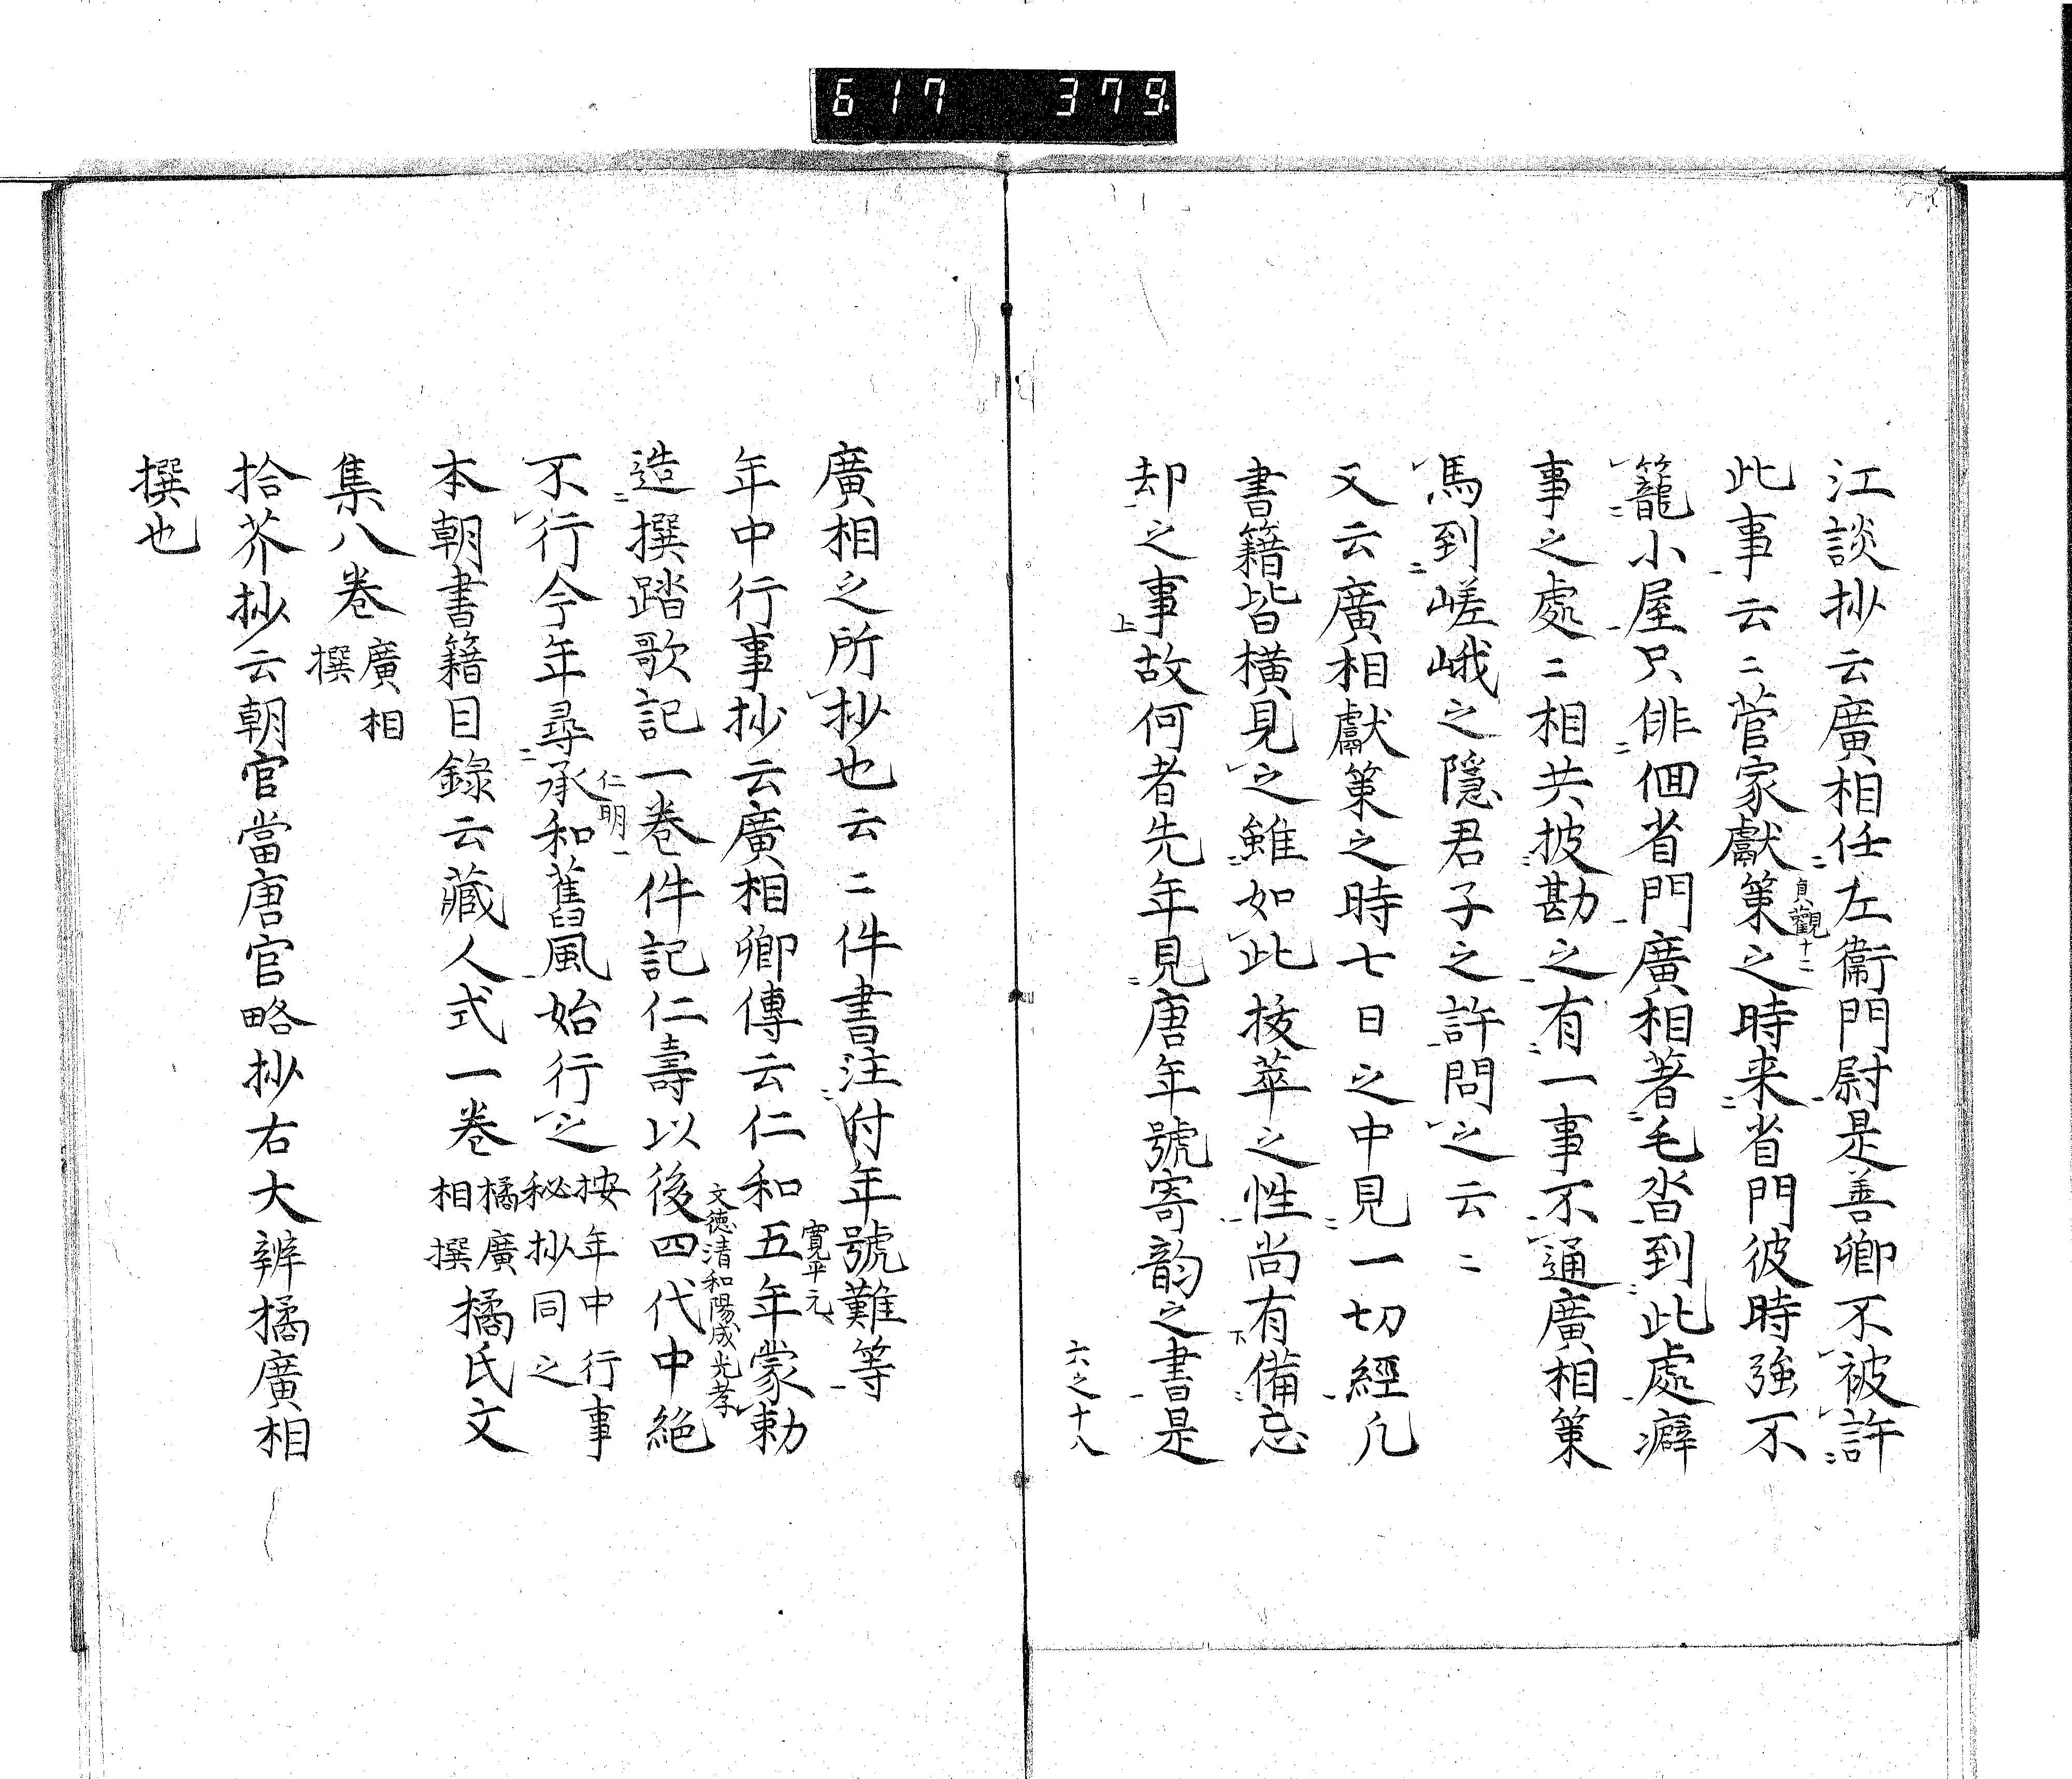 617 379
江談抄云廣相任左衞門尉是善卿不被許
此事云二菅家獻策之時来省門彼時強不
貞觀十二
籠小屋只俳佪省門廣相著毛沓到此處癖
事之處二相共披勘之有一事不通廣相策
馬到嵯峨之隱君子之許問之云二
又云廣相獻策之時七日之中見一切經凢
書籍皆橫見之雖如此拔萃之性尚有備忘
却之事故何者先年見唐年號寄韵之書是
六之十八
廣相之所抄也云二件書注付年號難等
年中行事抄云廣相卿傳云仁和五年蒙勅
寛平元
造撰踏歌記一卷件記仁壽以後四代中絶
文徳清和陽成光孝
不行今年尋承和舊風始行之按年中行事秘抄同之
仁明
本朝書籍目錄云藏人式一卷橘廣相撰橘氏文
集八卷廣相撰
拾芥抄云朝官當唐官略抄右大辨橘廣相
撰也